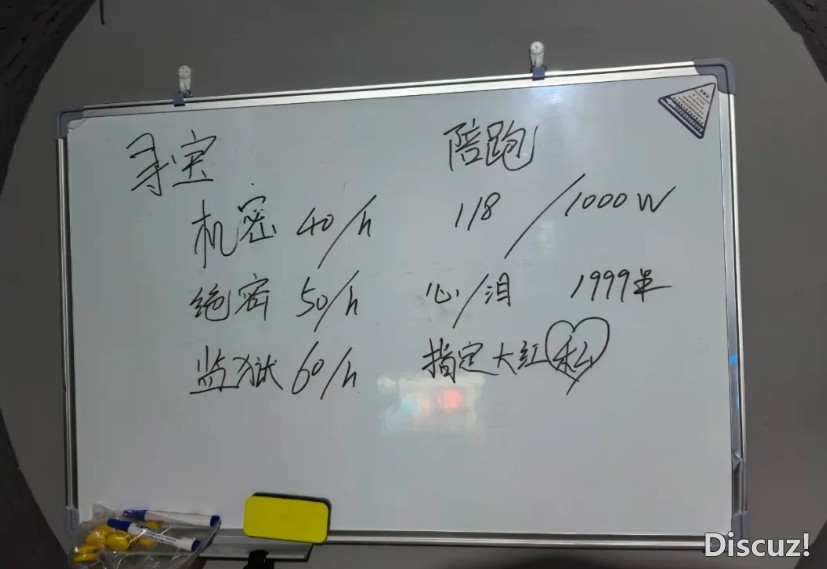 寻宝 陪跑
机密 40/h 118/1000W
绝密 50/h 心/泪 1999单
监狱 60/h 指定大红 私
Discuz!